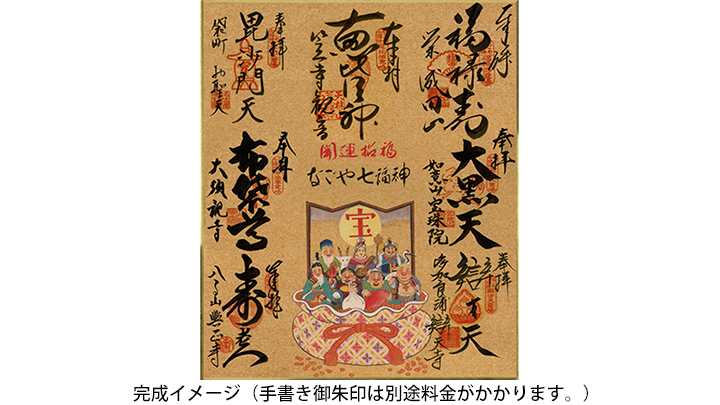 奉拝
福禄寿
栄 成田山
奉拝
恵比寿神
笠寺観音
奉拝
毘沙門天
袋町 お聖天
奉拝
大黒天
如意山宝珠院
開運招福
なごや七福神
奉拝
布袋尊
大須観音
奉拝
辯才天
辯天寺
宝
奉拝
寿老人
八事山興正寺
完成イメージ（手書き御朱印は別途料金がかかります。）